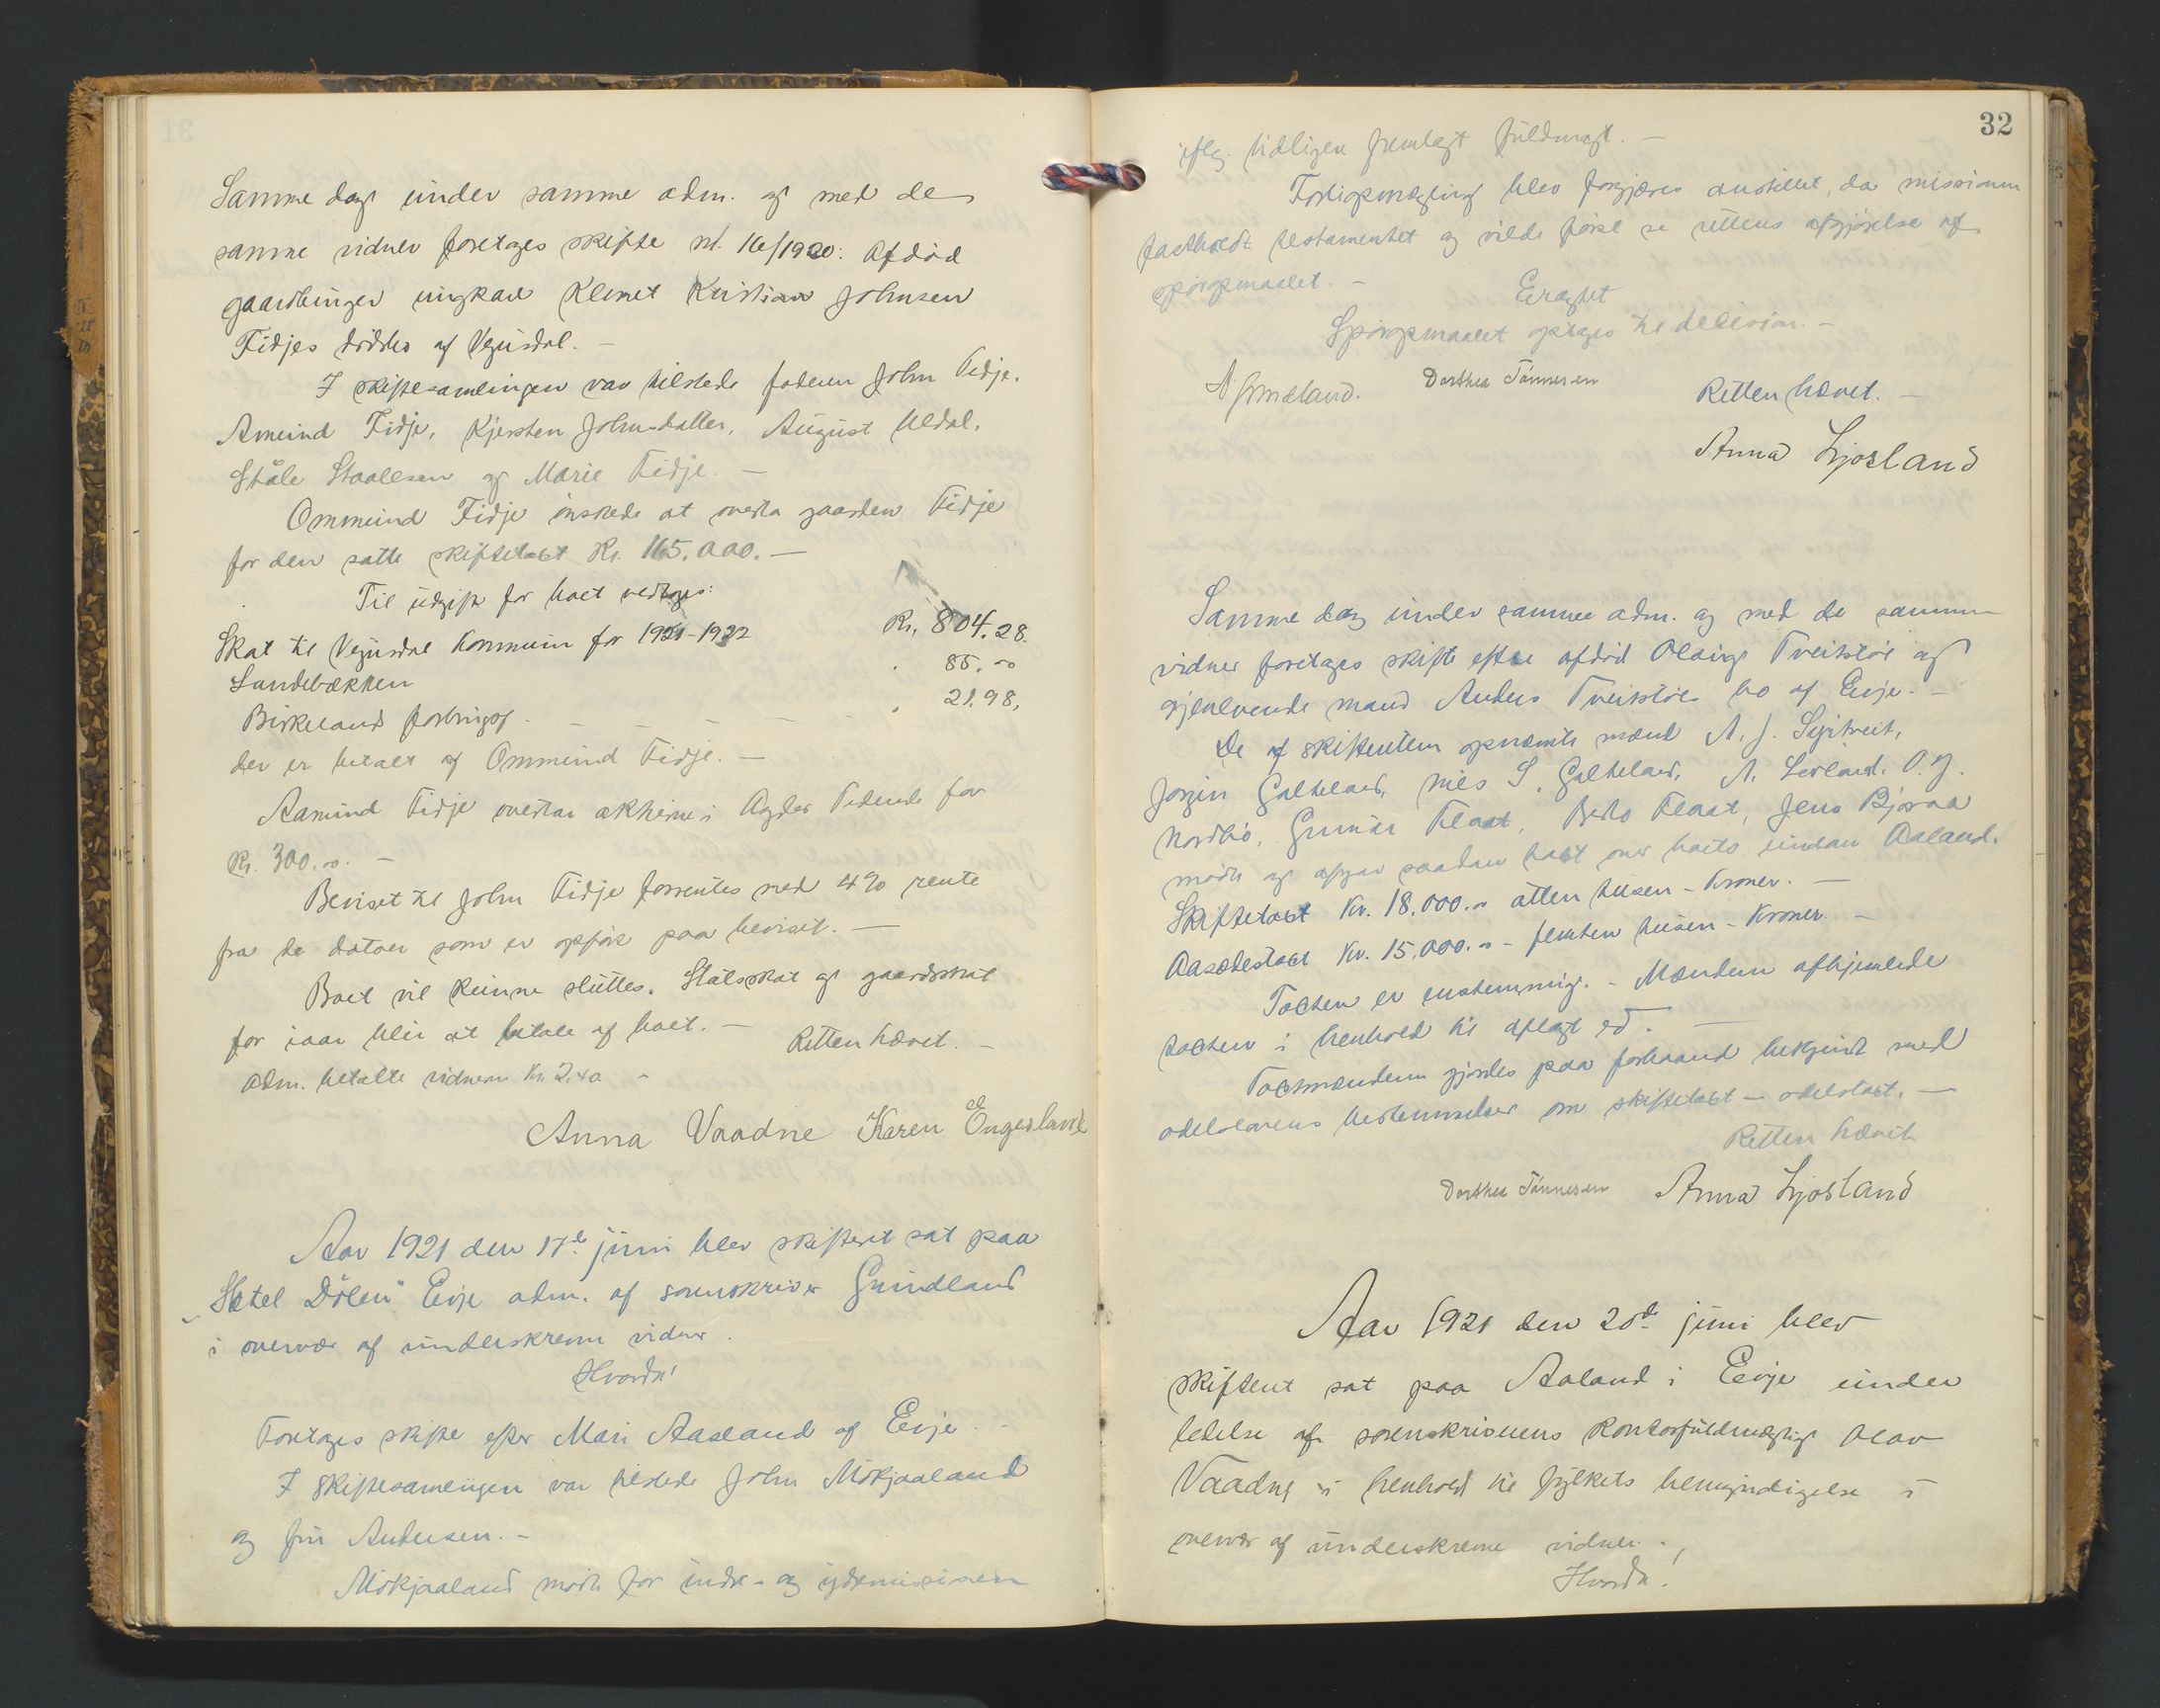 Samme dag under samme adm. og med de
samme vidner foretages skifte nr. 16/1920: Afdöd
gaardbruger ungkar Klemet Kristian Johnsen
Fidjes dödsbo af Vegusdal. –
I skiftesamlingen var tilstede faderen John Fidje.
Amund Fidje, Kjersten Johnsdatter, August Uldal,
Ståle Staalesen og Marie Fidje. –
Ommund Fidje önskede at overta gaarden Fidje
for den satte skiftetakst Kr. 165.000. –
Til udgift for boet vedtoges:
Skat til Vegusdal Kommune for 1921-1922 Kr. 804.28.
Landebækken . 85.00
Birkeland forbrugsf. – – – – – . 21.98,
der er betalt af Ommund Fidje. –
Aamund Fidje overtar aktierne i Agder Tidende for
Kr. 300.00. –
Beviset til John Fidje forrentes med 4% rente
fra de datoer som er opfört paa beviset. –
Boet vil kunne sluttes. Statsskat og gaardsskat
for iaar blir at betale af boet. –
Retten hævet. –
Adm. betalte vidnerne Kr. 2.40. –
Anna Vaadne Karen el Engesland
Aar 1921 den 17de juni blev skifteret sat paa
"Hotel Dölen" Evje adm. af sorenskriver Grundland
i overvær af underskrevne vidner.
Hvorda!
Foretages skifte efter Mari Aasland af Evje. –
I skiftesamlingen var tilstede John Mökjaaland
og fru Andersen. –
Mökjaaland mötte for indre- og ydremissionen
32
iflg. tidligere fremlagt fuldmagt. –
Forligsmægling blev forgjæves anstillet, da missionen
fastholdt testamentet og vilde först se rettens afgjörelse af
spörgsmaalet. –
Eragtet
Spörgsmaalet optages til decision. –
Retten hævet. –
Grundland. Dorthea Tönnesen
Anna Ljosland
Samme dag under samme adm. og med de samme
vidner foretages skifte efter afdöd Olaug Tveitstöl og
gjenlevende mand Anders Tveitstöls bo af Evje. –
De af skifteretten opnævnte mænd A. J. Syrtveit,
Jörgen Galteland, Nils S. Galteland, A. Lerland. O. J.
Nordbö, Gunnar Flaat, Berto Flaat, Jens Bjoraa
mödte og afgav saadan takst over boets eiendom Aaland.
Skiftetakst Kr. 18.000.00 atten tusen – Kroner. –
Aasædestakst Kr. 15.000.00 – femten tusen – Kroner. –
Taksten er enstemmig. – Mændene afhjemlede
taksten i henhold til aflagt ed. –
Takstmændene gjordes paa forhaand bekjendt med
odelslovens bestemmelser om skiftetakst – odelstakst. –
Retten hævet.
Dorthea Tönnesen Anna Ljosland
Aar 1921 den 20de juni blev
skifteret sat paa Aaland i Evje under
ledelse af sorenskriverens kontorfuldmægtig Olav
Vaadne i henhold til fylkets bemyndigelse i
overvær af underskrevne vidner. –
Hvorda!